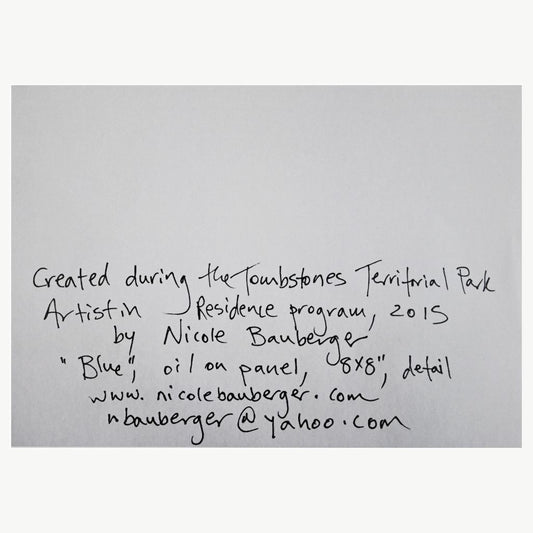 Created during the Tombstones Territorial Park
Artist in Residence program, 2015
by Nicole Bauberger
"Blue", oil on panel, 8x8", detail
www.nicolebauberger.com
nbauberger@yahoo.com